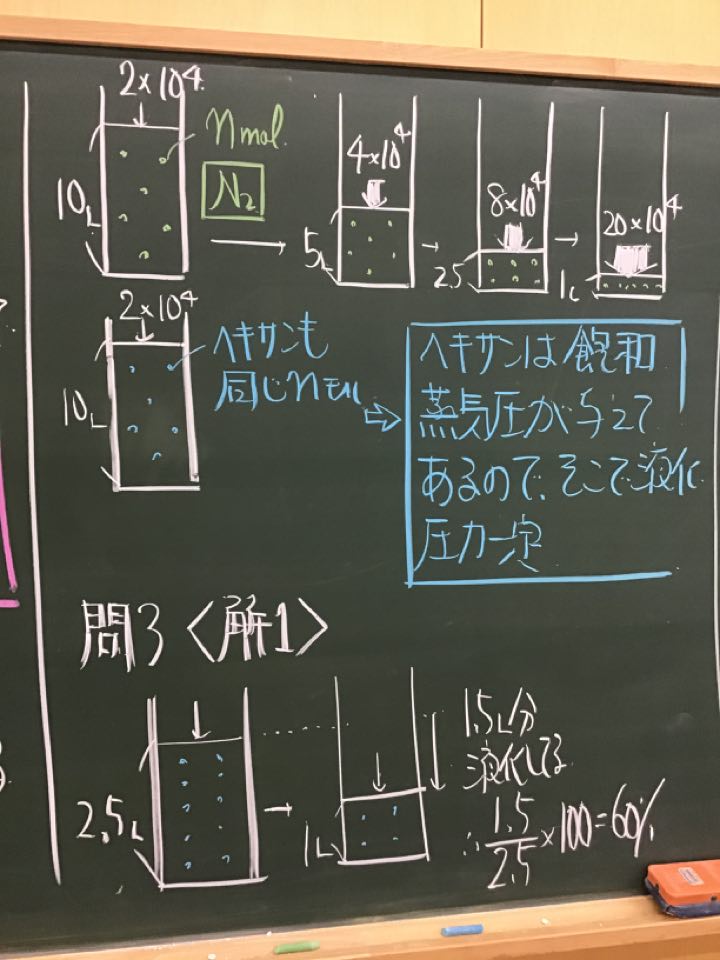 2×10⁴
n mol.
N₂
10L
4×10⁴
5L
8×10⁴
2.5
20×10⁴
1L
2×10⁴
10L
ヘキサンも
同じnモル
ヘキサンは飽和
蒸気圧が与えて
あるので、そこで液化
圧力一定
問3〈解1〉
2.5L
1L
1.5L分
液化してる
∴1.5/2.5×100=60%